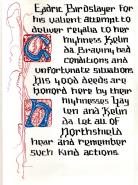 Eadric Birdslayer for
his valient attempt to
deliver regalia to her
highness Kelin
da Brauny bad
conditions and
unfortunate situations
His good deeds are
honord here by their
highnesses Lay
ven and Kelin
da let all of
Northshield
hear and remember
such kind actions